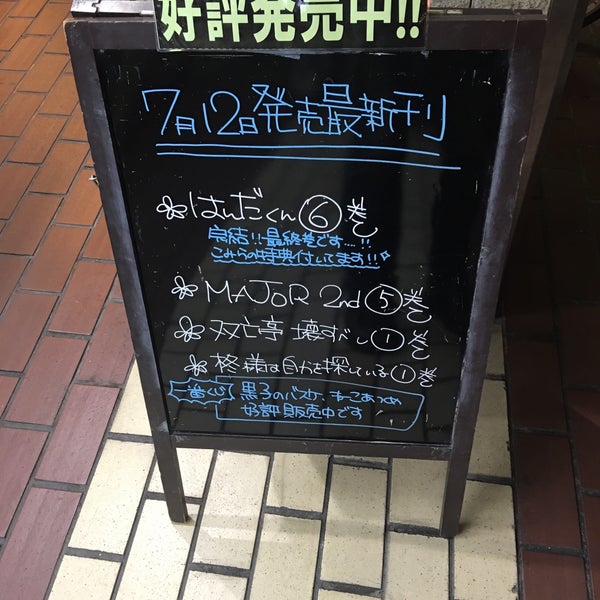 好評発売中!!
7月12日発売最新刊
はんだくん⑥巻
完結!!最終巻です....!!
こみらの特典付いてます!!
MAJOR 2nd⑤巻
双亡亭壊すべし①巻
柊様は自分を探している①巻
一番くじ 黒子のバスケ、ねこあつめ
好評販売中です